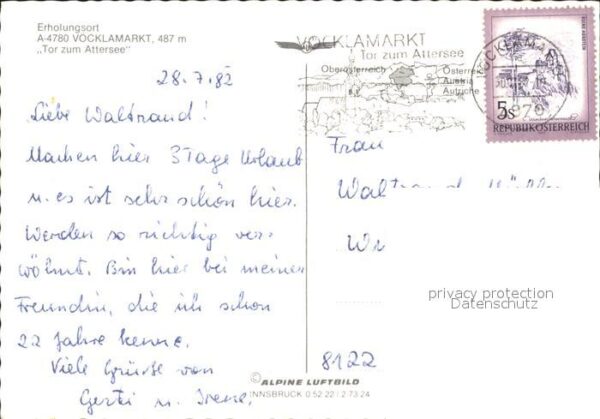 Erholungsort
A-4780 VÖCKLAMARKT, 487 m
„Tor zum Attersee"
28.7.82
Liebe Waltraud!
Machen hier 3 Tage Urlaub
u. es ist sehr schön hier.
Werden so richtig ver-
wöhnt. Bin hier bei meiner
Freundin, die ich schon
22 Jahre kenne.
Viele Grüsse von
Gerti u. Irene.
VÖCKLAMARKT
Tor zum Attersee
Oberösterreich
Österreich
Austria
Autriche
VÖCKLAMARKT
4870
5s
REPUBLIK ÖSTERREICH
Frau
Waltraud
8122
privacy protection
Datenschutz
© ALPINE LUFTBILD
INNSBRUCK 0 52 22 / 2 73 24